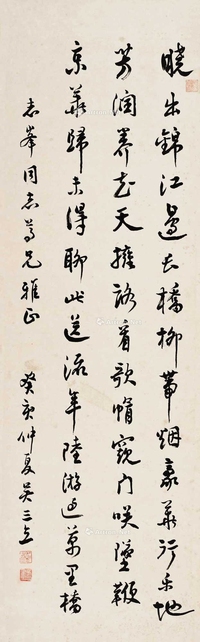 曉出錦江邊長橋柳帶烟豪華行樂地
芳润養花天擁路看欹帽窺门咲墮鞭
京華歸未得聊此送流年陸游過萬里橋
志峯同志尊兄雅正
癸亥仲夏吴三立